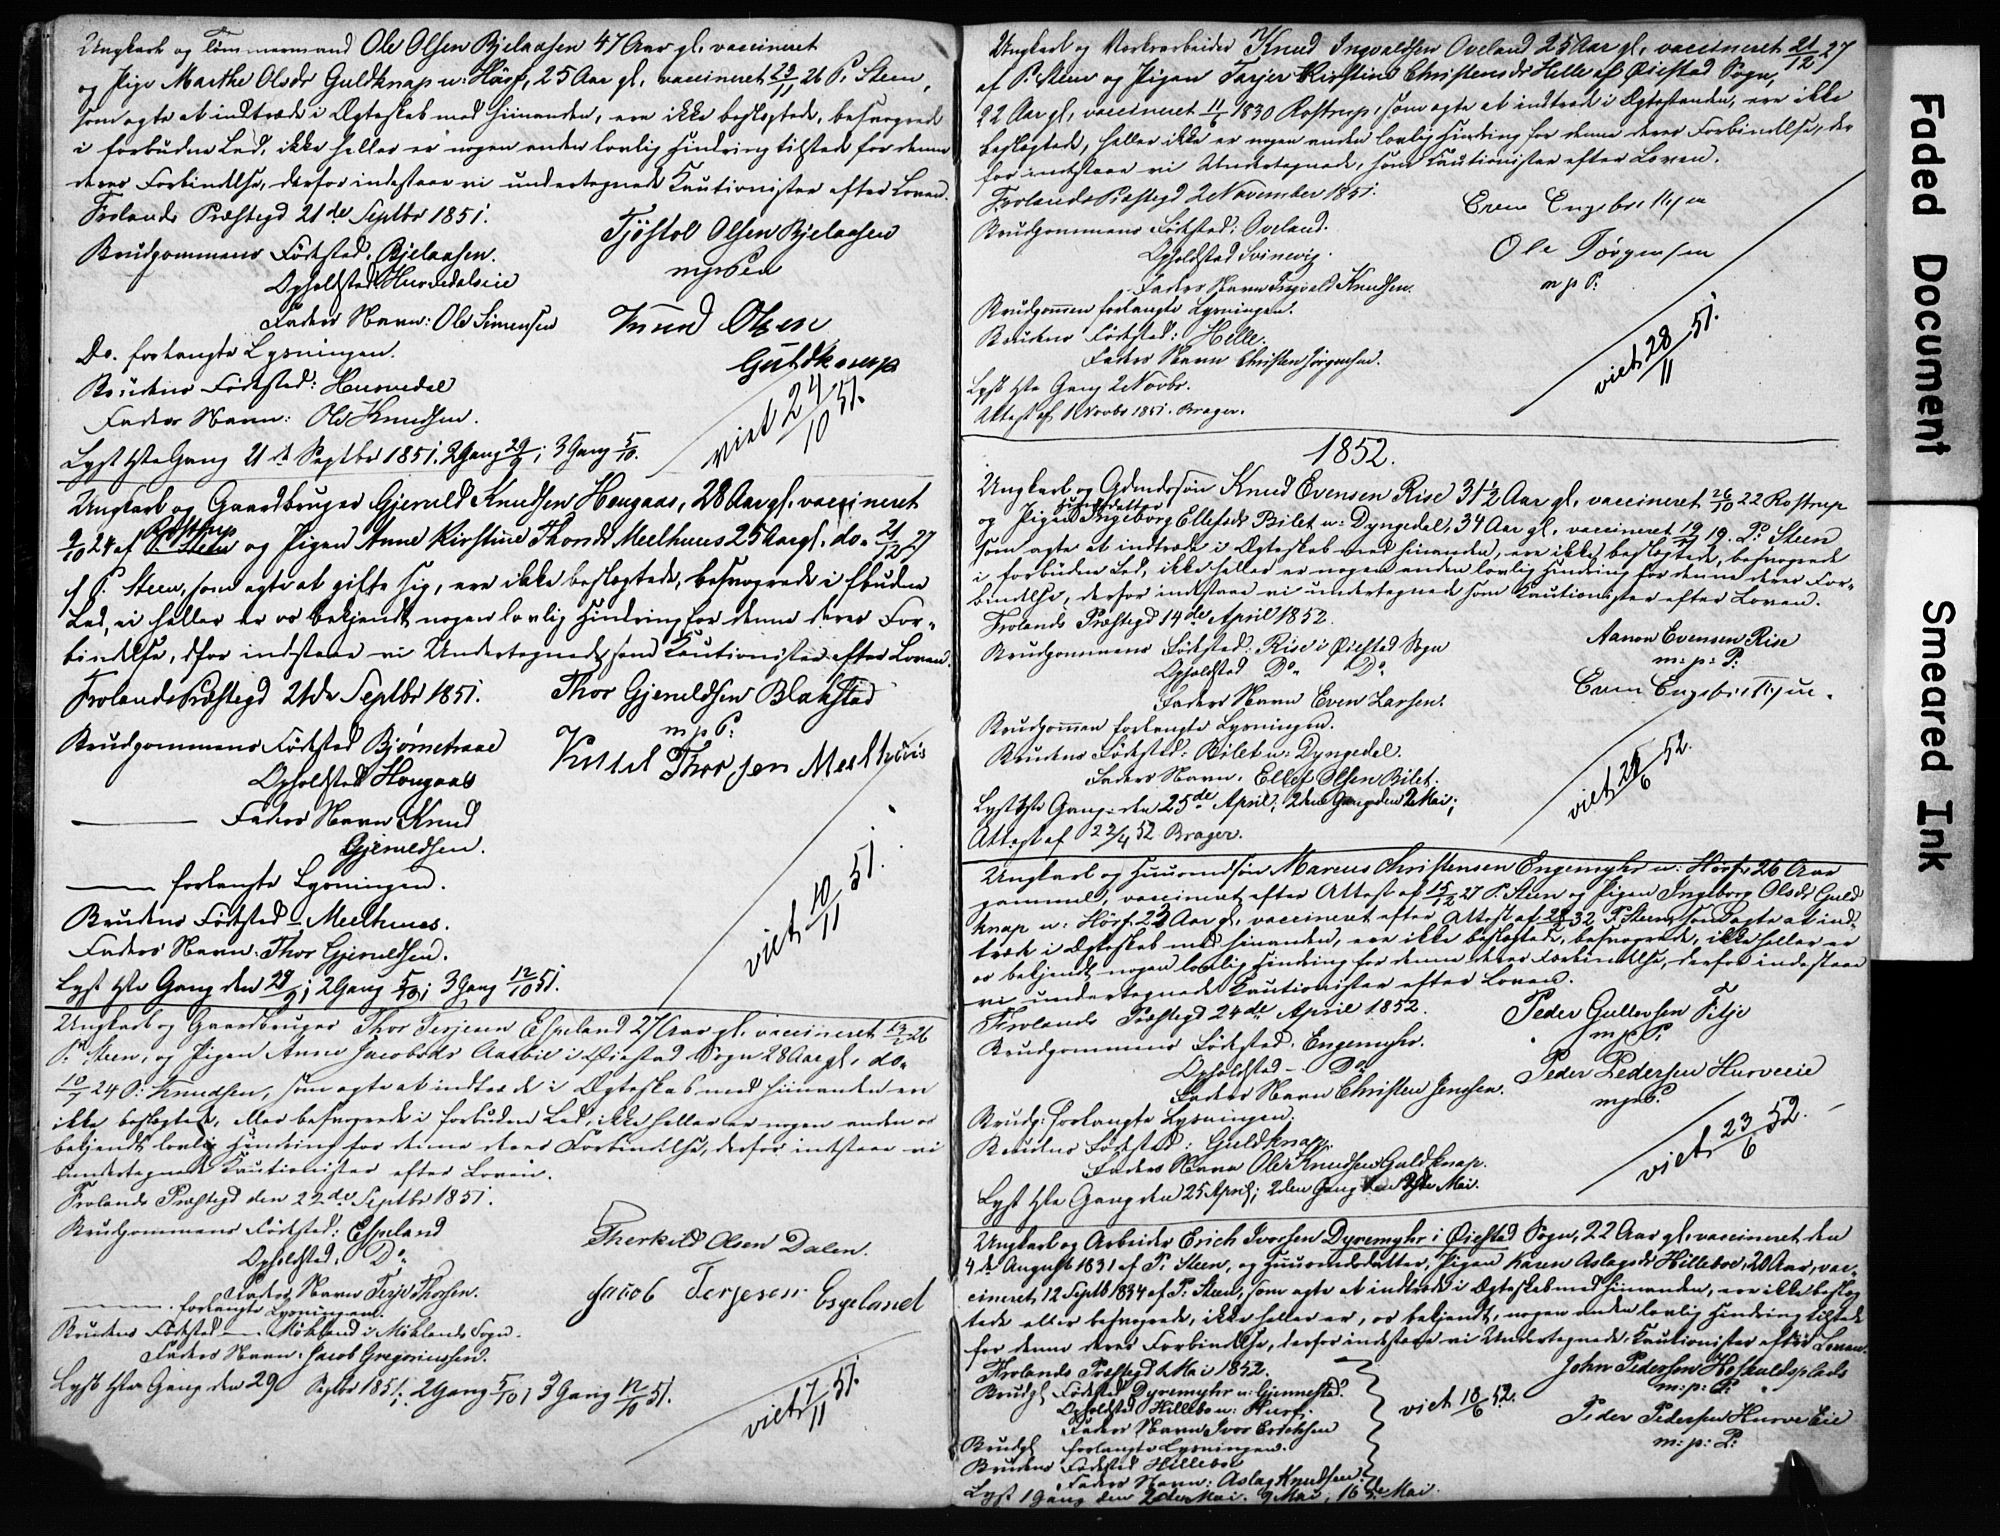 Ungkarl og Tømmermand Ole Olsen Bjelaasen 47 Aar gl. vaccineret
og Pige Marthe Olsdr Guldknap u: Hörf, 25 Aar gl. vaccineret 23/11 26 P. Steen,
som agte at indtræde i Ægteskab med hinanden, ere ikke beslægtede, besvogrede
i forbuden Led, ikke heller er nogen anden lovlig Hindring tilstede for denne
deres Forbindelse, derfor indestaae vi undertegnede Cautionister efter Loven.
Frolands Præstegd 21de Septbr 1851.
Brudgommens Födested, Bjelaasen.
Opholdsted Hurvedalseie
Faders Navn: Ole Simensen
Do. forlangte Lysningen.
Brudens Födested: Hurvedal
Faders Navn: Ole Knudsen.
Lyst 1ste Gang 21de Septbr 1851. 2 Gang 29/9; 3 Gang 5/10.
Tjöstol Olsen Bjelaasen
m p Pen
Knud Olsen
Guldknap
viet 24/10 51.
Ungkarl og Gaardbruger Gjeruld Knudsen Hougaas, 28 Aar gl. vaccineret
9/10 24 af Rostrup og Pigen Anne Kirstine Thorsdr Meelhuus 25 Aar gl. do. 21/12 27
af P. Steen, som agte at gifte sig, ere ikke beslægtede, besvogrede i fbuden
Led, ei heller er os bekjendt nogen lovlig Hindring for denne deres For-
bindelse, dfor indestaae vi Undertegnede som Cautionister efter Loven.
Frolands Præstegd 21de Septbr 1851.
Brudgommens Födested Bjørnetraae
Opholdsted Hougaas
Faders Navn Knud
Gjeruldsen.
forlangte Lysningen.
Brudens Födested - Meelhuus.
Faders Navn: Thor Gjeruldsen.
Lyst 1ste Gang den 29/9; 2 Gang 5/10; 3 Gang 12/10 51.
Thor Gjeruldsen Blakstad
m p P:
Kittel Thorsen Meelhuus
viet 10/11 51.
Ungkarl og Gaardbruger Thor Terjesen Espeland 27 Aar gl. vaccineret 26
P. Steen, og Pigen Anne Jacobsdr Aasbie i Øiestad Sogn 28 Aar gl. do.
10/7 24 P: Knudsen, som agte at indtræde i Ægteskab med hinanden er
ikke beslægtede, eller besvogrede i forbuden Led, ikke heller er nogen anden os
bekjendt lovlig Hindring for denne deres Forbindelse, derfor indestaae vi
undertegnede Cautionister efter Loven.
Frolands Præstegd den 22de Septbr 1851.
Brudgommens Födested: Espeland
Opholdsted, Do
Faders Navn Terje Thorsen.
forlangte Lysningen.
Brudens Födested — Møkland i Møklands Sogn.
Faders Navn: Jacob Gregoriussen.
Lyst 1ste Gang den 29 Septbr 1851; 2 Gang 5/10; 3 Gang 12/10 51.
Therkild Olsen Dalen.
Jacob Terjesen Espeland
viet 7/11 51.
Ungkarl og Værksarbeider Knud Ingvaldsen Oveland 25 Aar gl. vaccineret 21/12 27
af P. Steen og Pigen Tarjer Kirstine Christensdr Helle af Øiestad Sogn,
22 Aar gl, vaccineret 11/6 1830 Rostrup, som agte at indtræde i Ægtestanden, ere ikke
beslægtede, heller ikke er nogen anden lovlig Hindring for denne deres Forbindelse, der
for indestaae vi Undertegnede, som Cautionister efter Loven.
Frolands Præstegd 2 November 1851.
Brudgommens Födested: Oveland.
Opholdsted Svinevig.
Faders Navn Ingvald Knudsen.
Brudgommen forlangte Lysningen.
Brudens Födested: Helle.
Faders Navn Christen Jørgensen.
Lyst 1ste Gang 2 Novbr.
Attest af 1 Novbr 1851. Brager.
Even Engebrittsen
Ole Törgensen
m p P.
viet 28/11 51.
1852.
Ungkarl og Gdmdssön Knud Evensen Rise 31½ Aar gl, vaccineret 26/10 22 Rostrup
og Pigen Ingeborg Ellefsdr Bilet u: Dyngedal, 34 Aar gl, vaccineret 19 P: Steen
som agte at indtræde i Ægteskab med hinanden, ere ikke beslægtede, besvogrede
i forbuden Led, ikke heller er nogen anden lovlig Hindring for denne deres For-
bindelse, derfor indestaae vi undertegnede som Cautionister efter Loven.
Frolands Præstegd 14de April 1852.
Brudgommens Födested: Rise i Øiestad Sogn
Opholdsted Do Do
Faders Navn Even Larsen.
Brudgommen forlangte Lysningen.
Brudens Födested: Bilet u: Dyngedel.
Faders Navn. Ellef Olsen Bilet.
Lyst 1ste Gang den 25de April, 2den Gang den 2 Mai;
Attest af 22/4 52 Brager.
Aanon Evensen Rise
m: p: P:
Even Engebrittsen.
viet 6 52.
Ungkarl og Huusmdsön Marcus Christensen Engemyhr u: Hörf. 26 Aar
gammel, vaccineret efter Attest af 15/12 27 P. Steen og Pigen Ingeborg Olsdr Guld
knap u: Hörf. 23 Aar gl, vaccineret efter Attest af 32 P. Steen, som agte at ind-
træde i Ægteskab med hinanden, ere ikke beslægtede, besvogrede, ikke heller er
os bekjendt nogen lovlig Hindring for denne deres Forbindelse, derfor indestaae
vi undertegnede Cautionister efter Loven.
Frolands Præstegd 24de April 1852.
Brudgommens Födested. Engemyhr.
Opholdsted - Do
Faders Navn Christen Jensen.
Brudg: forlangte Lysningen.
Brudens Födested: Guldknap.
Faders Navn Ole Knudsen Guldknap.
Lyst 1ste Gang den 25 April; 2den Gang den Mai.
Peder Gullersen Fitje
m p P.
Peder Pedersen Hurveeie
m p P.
viet 23/6 52.
Ungkarl og Arbeider Erich Iversen Dyremyhr i Øiestad Sogn, 22 Aar gl. vaccineret den
4de August 1831 af P. Steen, og Huusmdsdatter, Pigen Karen Aslagsdr Hilleboe, 20 Aar, vac-
cineret 12 Septb 1834 af P. Steen, som agte at indtræde i Ægteskab med hinanden, ere ikke beslæg
tede eller besvogrede, ikke heller er, os bekjendt, nogen anden lovlig Hindring tilstede
for denne deres Forbindelse, derfor indestaae vi Undertegnede Cautionister efter Loven.
Frolands Præstegd 1 Mai 1852.
Brudg: Födested Dyremyhr u: Gjennestad.
Opholdsted Hilleboe u: Hurf.
Faders Navn Iver Erichsen
Brudg: forlangte Lysningen.
Brudens Födested Hilleboe
Faders Navn: Aslag Knudsen.
Lyst 1 Gang den 2den Mai. 9 Mai, 16de Mai.
viet 18/6 52.
John Pedersen Heskuldsplads
m: p: P:
Peder Pedersen Hurve Eie
m: p: P:
Faded Document
Smeared Ink